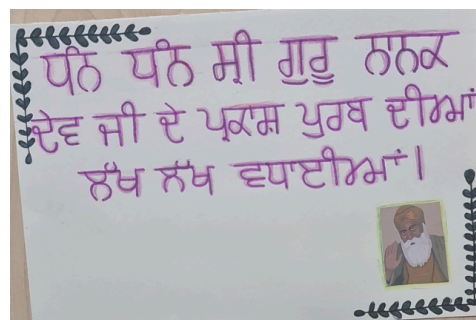 ਧੰਨ ਧੰਨ ਸ਼੍ਰੀ ਗੁਰੂ ਨਾਨਕ
ਦੇਵ ਜੀ ਦੇ ਪ੍ਰਕਾਸ਼ ਪੁਰਬ ਦੀਆਂ
ਲੱਖ ਲੱਖ ਵਧਾਈਆਂ।